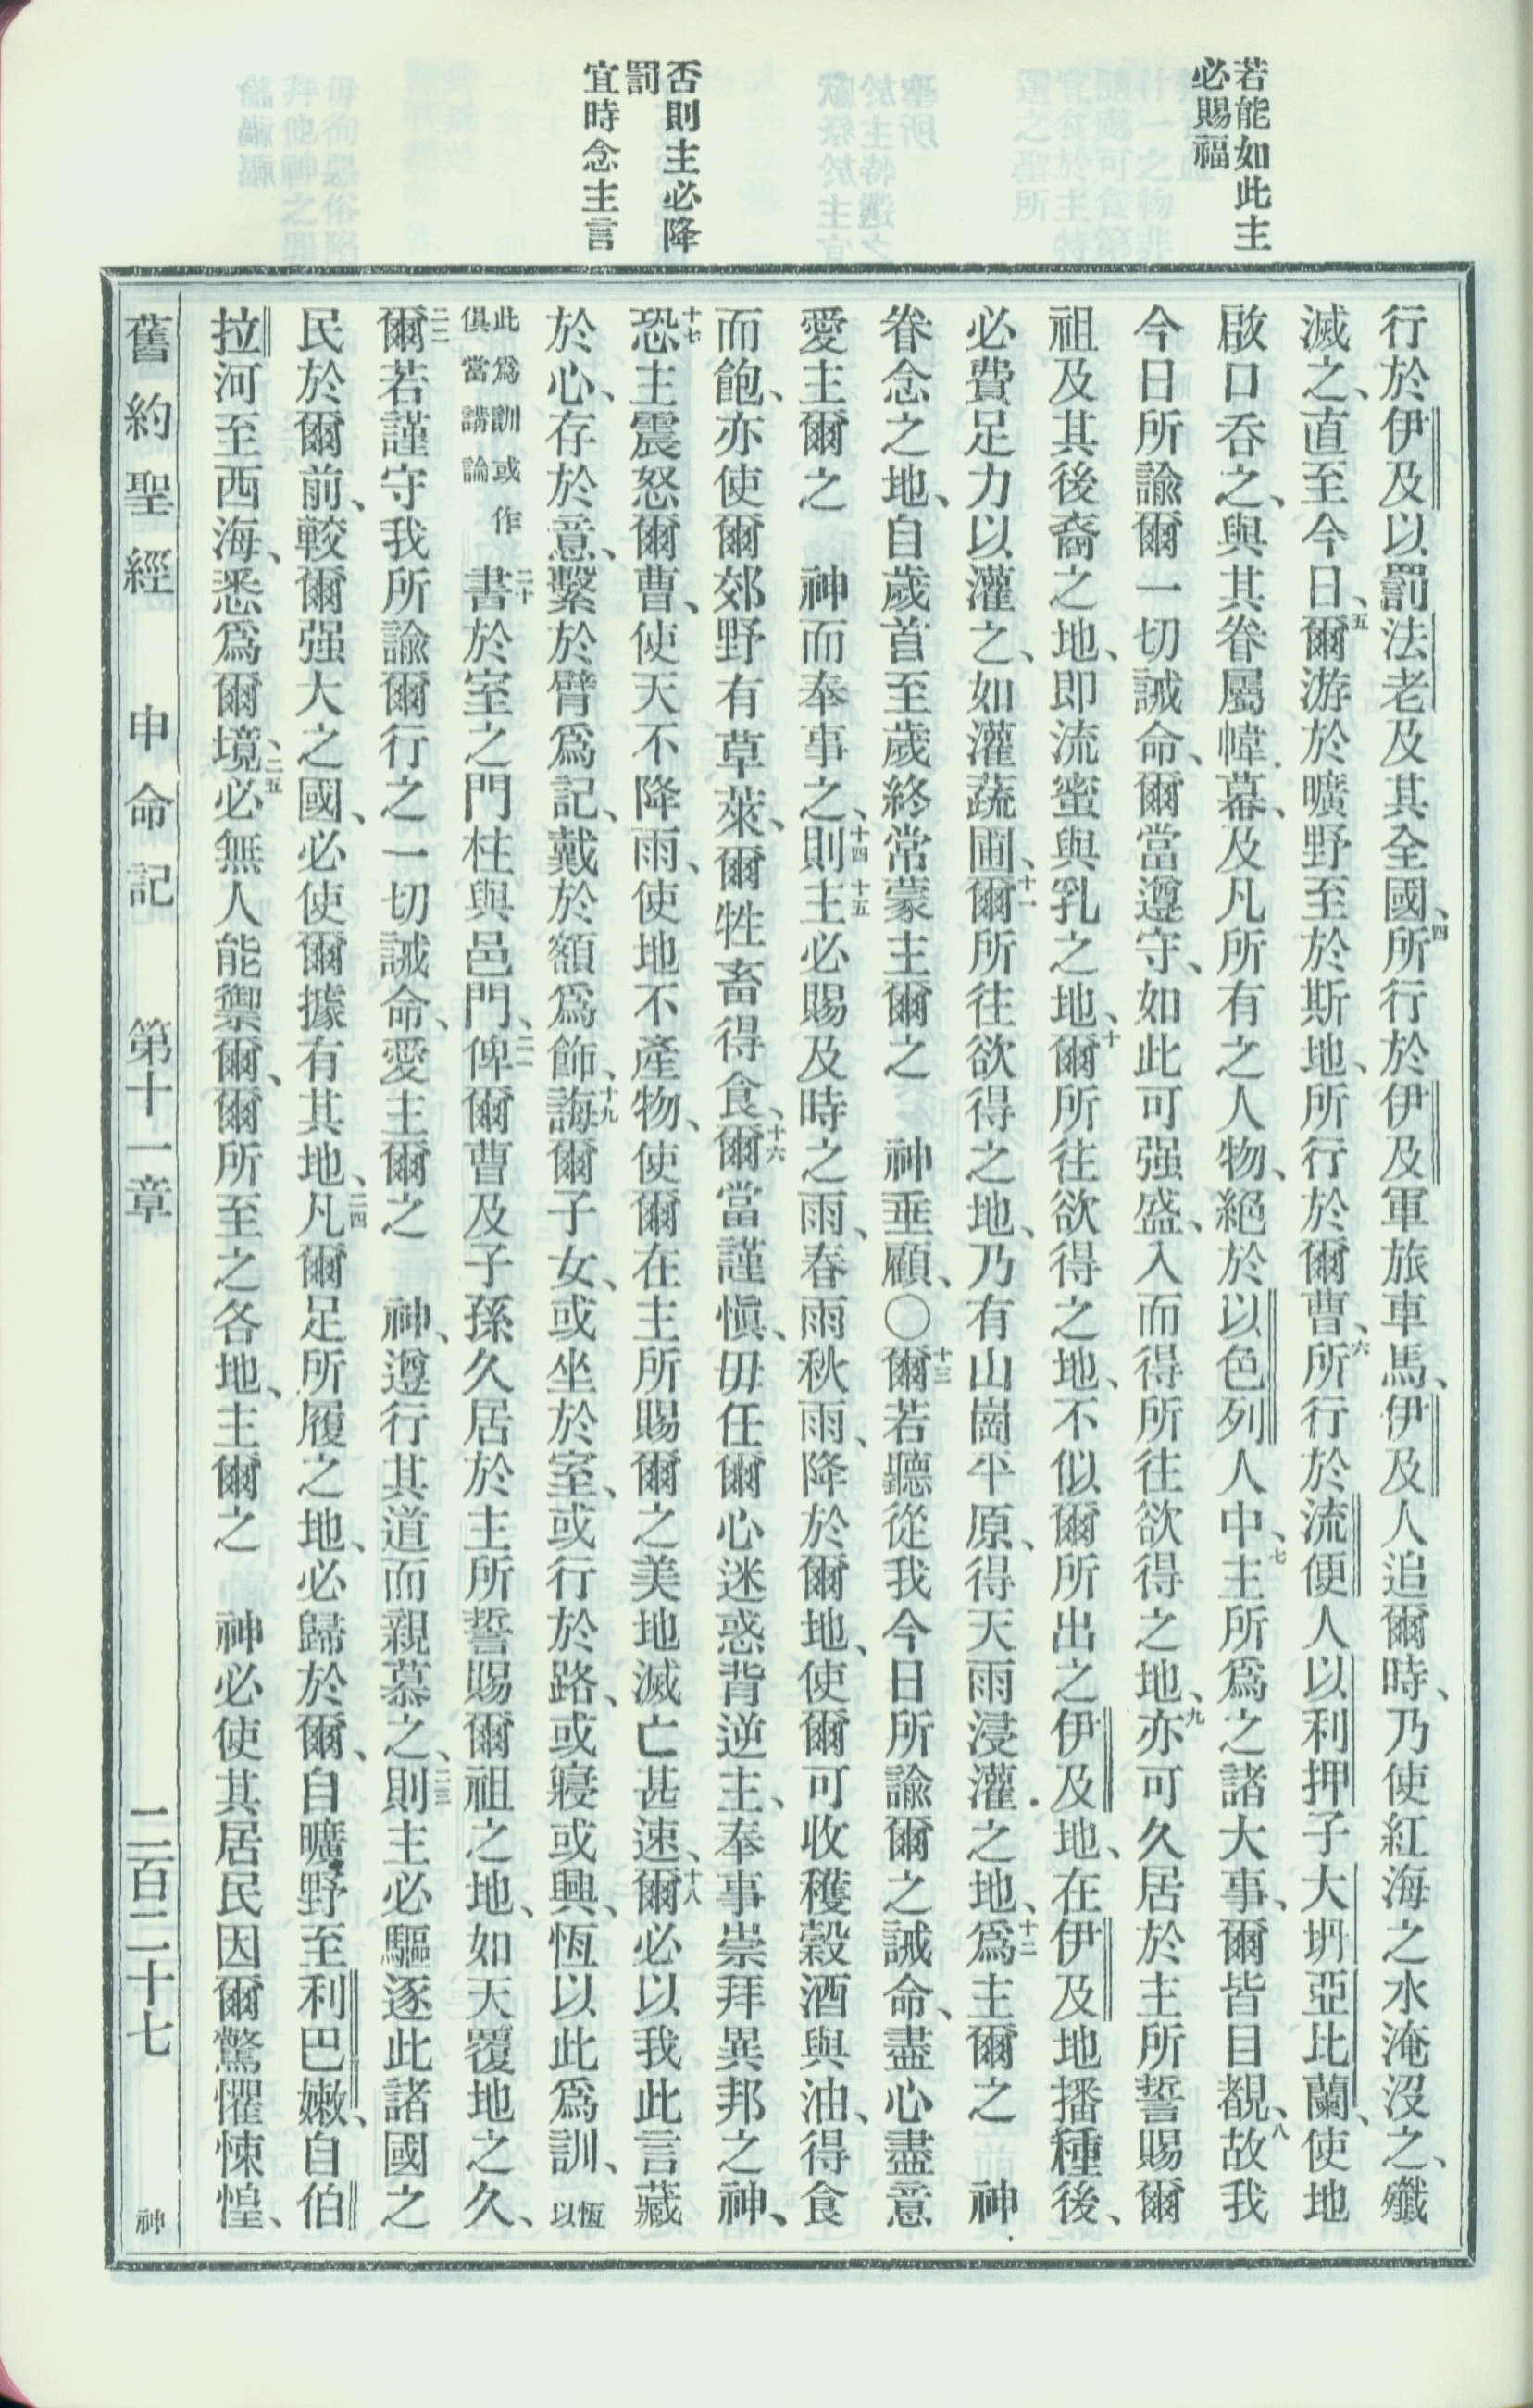 若能如此主
必賜福
否則主必降
罰
宜時念主言
行於伊及以罰法老及其全國、四所行於伊及軍旅車馬、伊及人追爾時、乃使紅海之水淹沒之、殲
滅之、直至今日、五爾游於曠野至於斯地、所行於爾曹、六所行於流便人以利押子大坍亞比蘭、使地
啟口吞之、與其眷屬幃幕、及凡所有之人物、絕於以色列人中、七主所爲之諸大事、爾皆目覩、八故我
今日所諭爾一切誡命、爾當遵守、如此可强盛、入而得所往欲得之地、九亦可久居於主所誓賜爾
祖及其後裔之地、即流蜜與乳之地、十爾所往欲得之地、不似爾所出之伊及地、在伊及地播種後、
必費足力以灌之、如灌蔬圃、十一爾所往欲得之地、乃有山崗平原、得天雨浸灌之地、十二爲主爾之 神
眷念之地、自歲首至歲終常蒙主爾之 神垂顧、〇十三爾若聽從我今日所諭爾之誡命、盡心盡意
愛主爾之 神而奉事之、十四則十五主必賜及時之雨、春雨秋雨、降於爾地、使爾可收穫穀酒與油、得食
而飽、亦使爾郊野有草萊、爾牲畜得食、十六爾當謹愼、毋任爾心迷惑背逆主、奉事崇拜異邦之神、
十七恐主震怒爾曹、使天不降雨、使地不產物、使爾在主所賜爾之美地滅亡甚速、十八爾必以我此言藏
於心、存於意、繫於臂爲記、戴於額爲飾、十九誨爾子女、或坐於室、或行於路、或寢或興、恆以此爲訓、恆以
此爲訓或作俱當講論 二十書於室之門柱與邑門、二一俾爾曹及子孫久居於主所誓賜爾祖之地、如天覆地之久、
二二爾若謹守我所諭爾行之一切誡命、愛主爾之 神、遵行其道而親慕之、二三則主必驅逐此諸國之
民於爾前、較爾强大之國、必使爾據有其地、二四凡爾足所履之地、必歸於爾、自曠野至利巴嫩、自伯
拉河至西海、悉爲爾境、二五必無人能禦爾、爾所至之各地、主爾之 神必使其居民因爾驚懼悚惶、
舊約聖經 申命記 第十一章 二百二十七 神